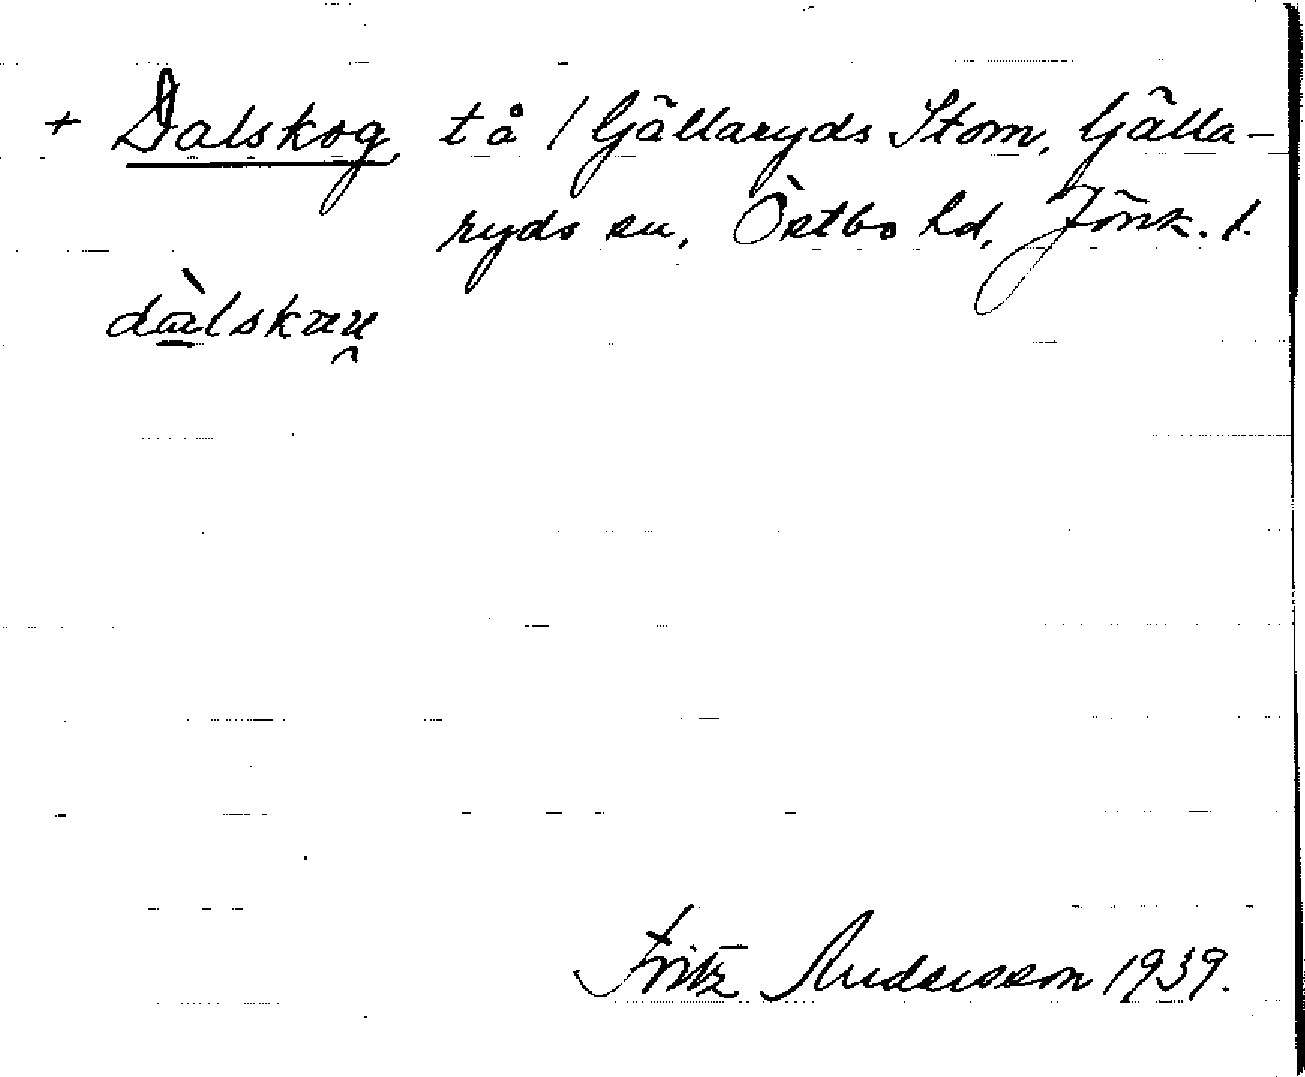 + Dalskog, tå / Gällaryds Stom, Gälla-
ryds sn, Östbo hd, Jönk. l.
Fritz Andersson 1939.